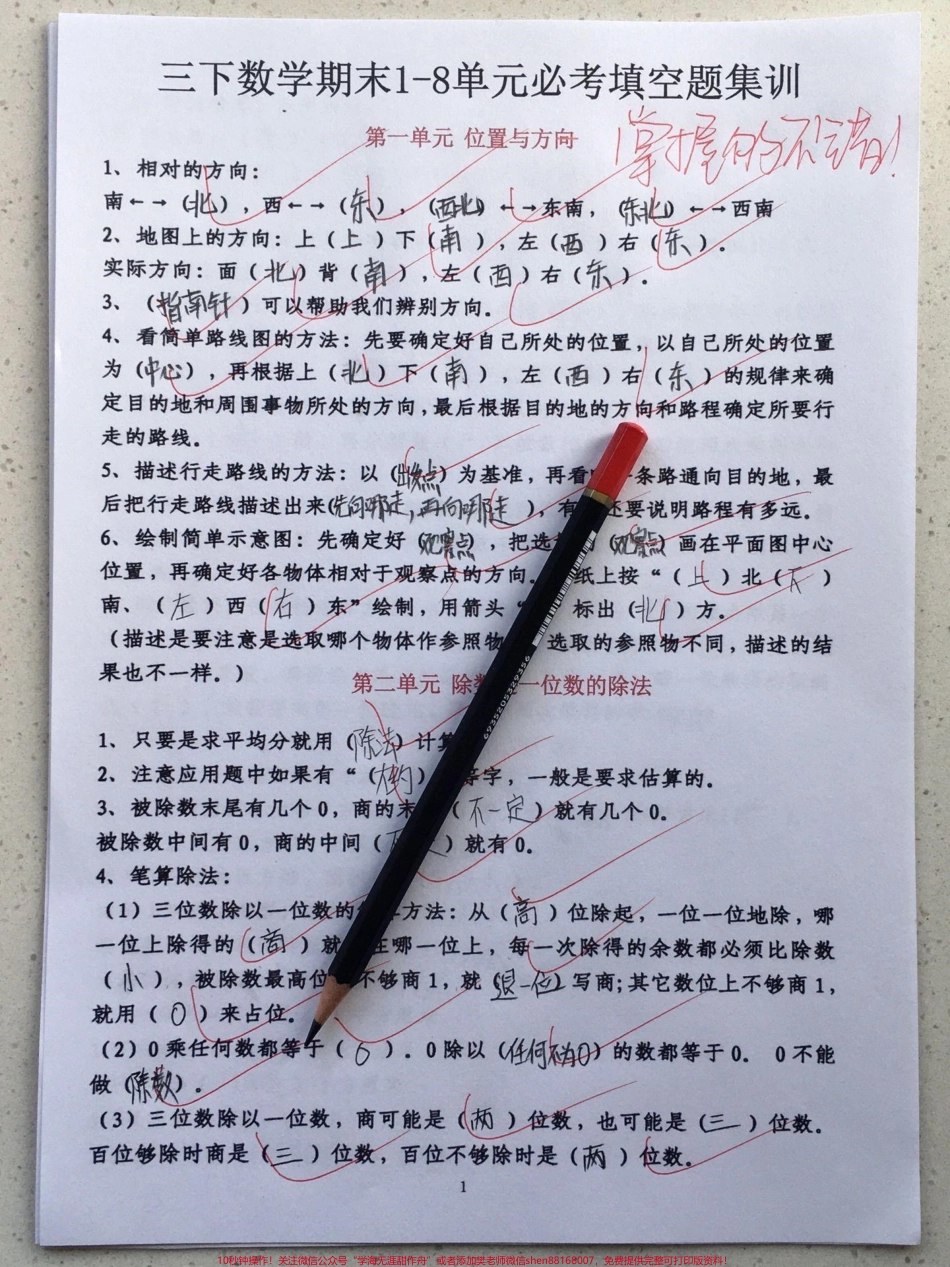 三下数学期末1-8单元必考填空题集训
第一单元 位置与方向
掌握的不错!
1、相对的方向:
南←→（北），西←→（东），（西北）←→东南，（东北）←→西南
2、地图上的方向:上（上）下（南），左（西）右（东）。
实际方向:面（北）背（南），左（西）右（东）。
3、（指南针）可以帮助我们辨别方向。
4、看简单路线图的方法:先要确定好自己所处的位置，以自己所处的位置
为（中心），再根据上（北）下（南），左（西）右（东）的规律来确
定目的地和周围事物所处的方向，最后根据目的地的方向和路程确定所要行
走的路线。
5、描述行走路线的方法:以（出发点）为基准，再看 条路通向目的地，最
后把行走路线描述出来（先向哪走，再向哪走），有 还要说明路程有多远。
6、绘制简单示意图:先确定好（观察点），把选 （观察点）画在平面图中心
位置，再确定好各物体相对于观察点的方向。 纸上按“（上）北（下）
南、（左）西（右）东”绘制，用箭头“ 标出（北）方。
（描述是要注意是选取哪个物体作参照物 选取的参照物不同，描述的结
果也不一样。）
第二单元 除数 一位数的除法
1、只要是求平均分就用（除法）计算
2、注意应用题中如果有“（大约） 等字，一般是要求估算的。
3、被除数末尾有几个0，商的末 （不一定）就有几个0。
被除数中间有0，商的中间（ ）就有0。
4、笔算除法:
（1）三位数除以一位数的 方法:从（高）位除起，一位一位地除，哪
一位上除得的（商）就 在哪一位上，每一次除得的余数都必须比除数
（小），被除数最高位 不够商1，就（退一位）写商;其它数位上不够商1，
就用（0）来占位。
（2）0乘任何数都等于（0）。0除以（任何不为0）的数都等于0。 0不能
做（除数）。
（3）三位数除以一位数，商可能是（两）位数，也可能是（三）位数。
百位够除时商是（三）位数，百位不够除时是（两）位数。
1
6935205329356
10秒钟操作！关注微信公众号“学海无涯甜作舟”或者添加樊老师微信shen88168007，免费提供完整可打印版资料！